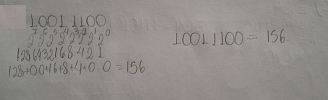 10011100
2⁷2⁶2⁵2⁴2³2²2¹2⁰
1286432168421
128+0.046+8+4+0.0=156
10011100=156.